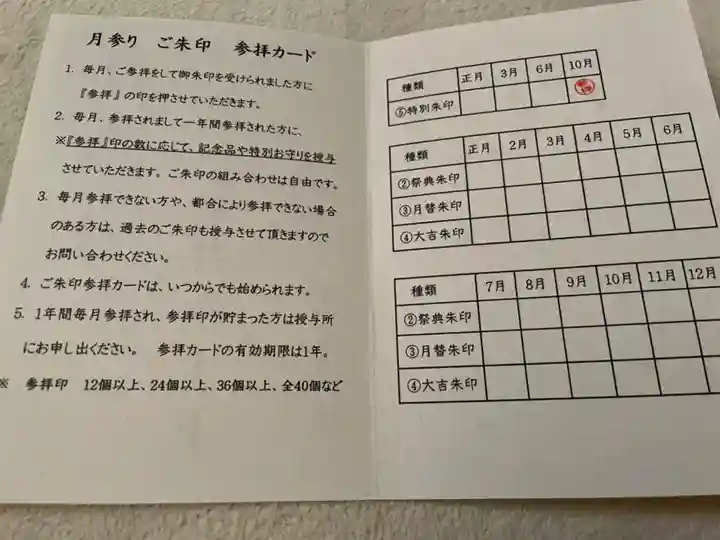 月参り ご朱印 参拝カード
1. 毎月、ご参拝をして御朱印を受けられました方に
『参拝』の印を押させていただきます。
2. 毎月、参拝されまして一年間参拝された方に、
※『参拝』印の数に応じて、記念品や特別お守りを授与
させていただきます。ご朱印の組み合わせは自由です。
3. 毎月参拝できない方や、都合により参拝できない場合
のある方は、過去のご朱印も授与させて頂きますので
お問い合わせください。
4. ご朱印参拝カードは、いつからでも始められます。
5. 1年間毎月参拝され、参拝印が貯まった方は授与所
にお申し出ください。 参拝カードの有効期限は1年。
※ 参拝印 12個以上、24個以上、36個以上、全40個など
種類 正月 3月 6月 10月
⑤特別朱印
種類 正月 2月 3月 4月 5月 6月
②祭典朱印
③月替朱印
④大吉朱印
種類 7月 8月 9月 10月 11月 12月
②祭典朱印
③月替朱印
④大吉朱印